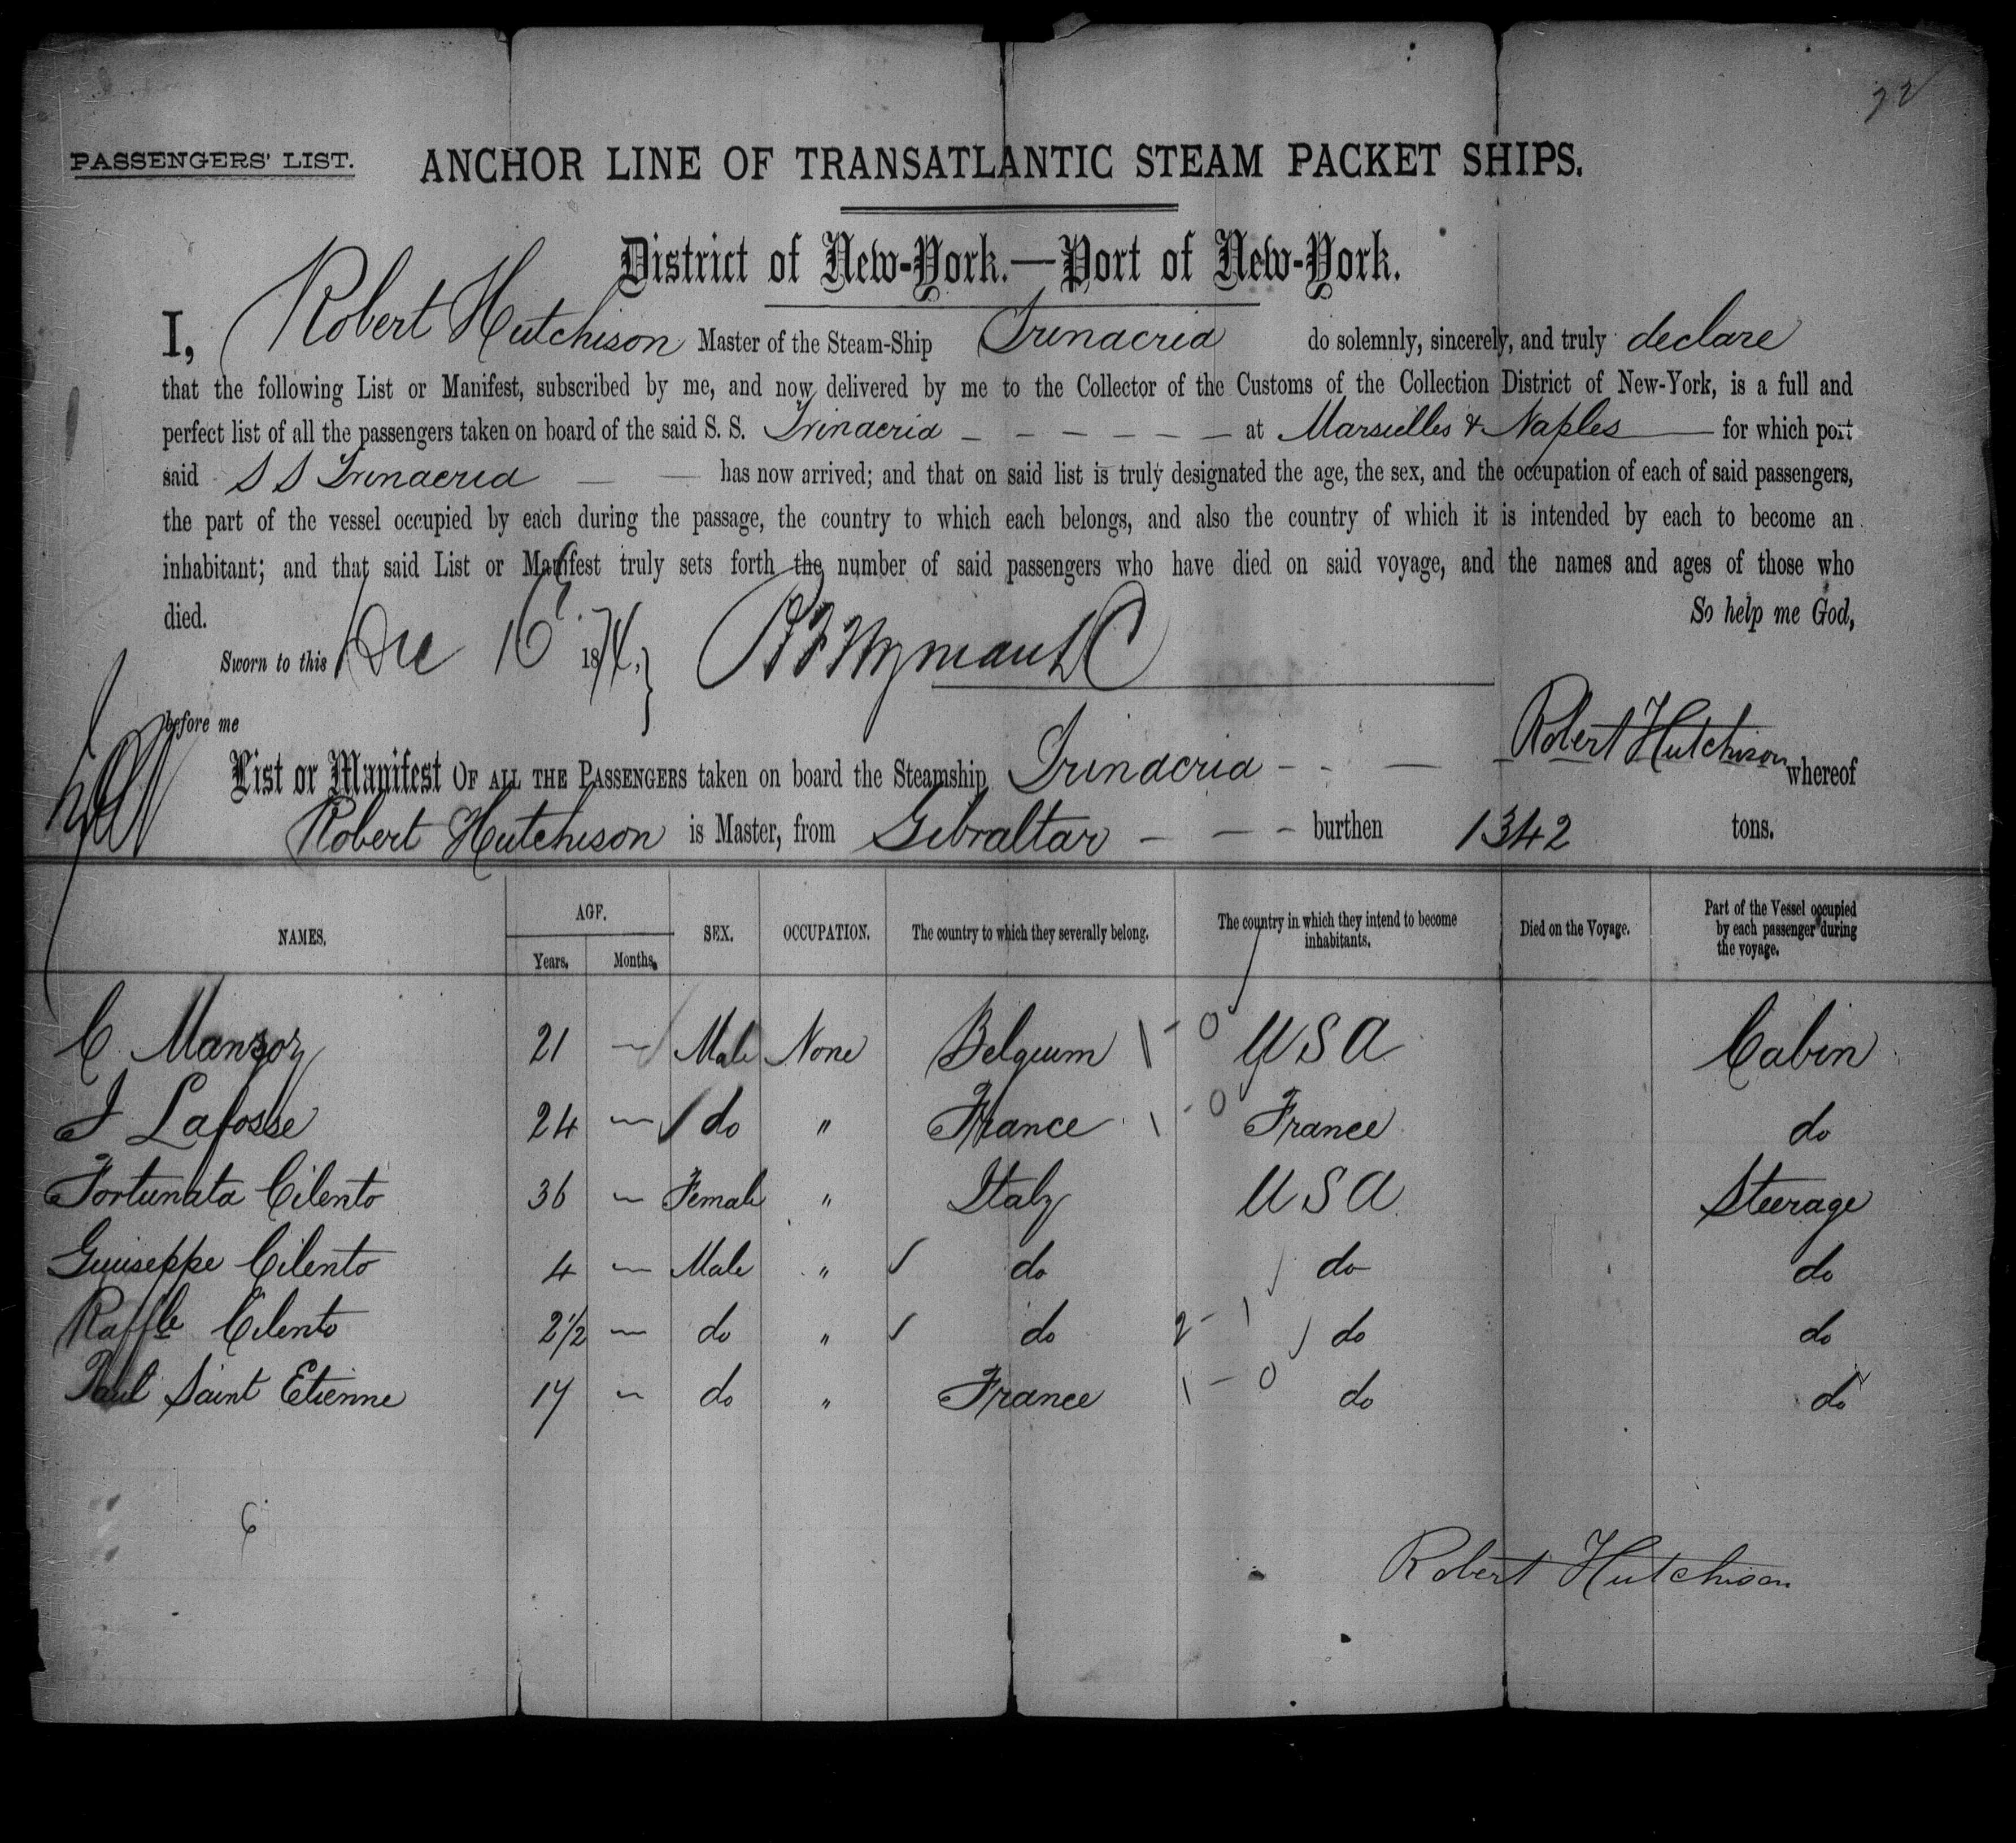 72
PASSENGERS' LIST. ANCHOR LINE OF TRANSATLANTIC STEAM PACKET SHIPS.
District of New-York.—Port of New-York.
I, Robert Hutchison Master of the Steam-Ship Trinacria do solemnly, sincerely, and truly declare
that the following List or Manifest, subscribed by me, and now delivered by me to the Collector of the Customs of the Collection District of New-York, is a full and
perfect list of all the passengers taken on board of the said S. S. Trinacria — — — — — — at Marseilles & Naples — for which port
said S S Trinacria — — has now arrived; and that on said list is truly designated the age, the sex, and the occupation of each of said passengers,
the part of the vessel occupied by each during the passage, the country to which each belongs, and also the country of which it is intended by each to become an
inhabitant; and that said List or Manifest truly sets forth the number of said passengers who have died on said voyage, and the names and ages of those who
died. So help me God,
Sworn to this Dec 16 1874.
before me Robert Hutchison
List or Manifest OF ALL THE PASSENGERS taken on board the Steamship Trinacria - - — whereof
Robert Hutchison is Master, from Gibraltar — — - burthen 1342 tons.
NAMES. AGE. Years. Months. SEX. OCCUPATION. The country to which they severally belong. The country in which they intend to become inhabitants. Died on the Voyage. Part of the Vessel occupied by each passenger during the voyage.
C. Manzoz 21 — Male None Belgium 1 - 0 USA Cabin
J Lafosse 24 — do " France 1 - 0 France do
Fortunata Cilento 36 — Female " Italy USA Steerage
Guiseppe Cilento 4 — Male " do do do
Raffle Cilento 2½ — do " do 2 - 1 do do
Paul Saint Etienne 17 — do " France 1 - 0 do do
6
Robert Hutchison